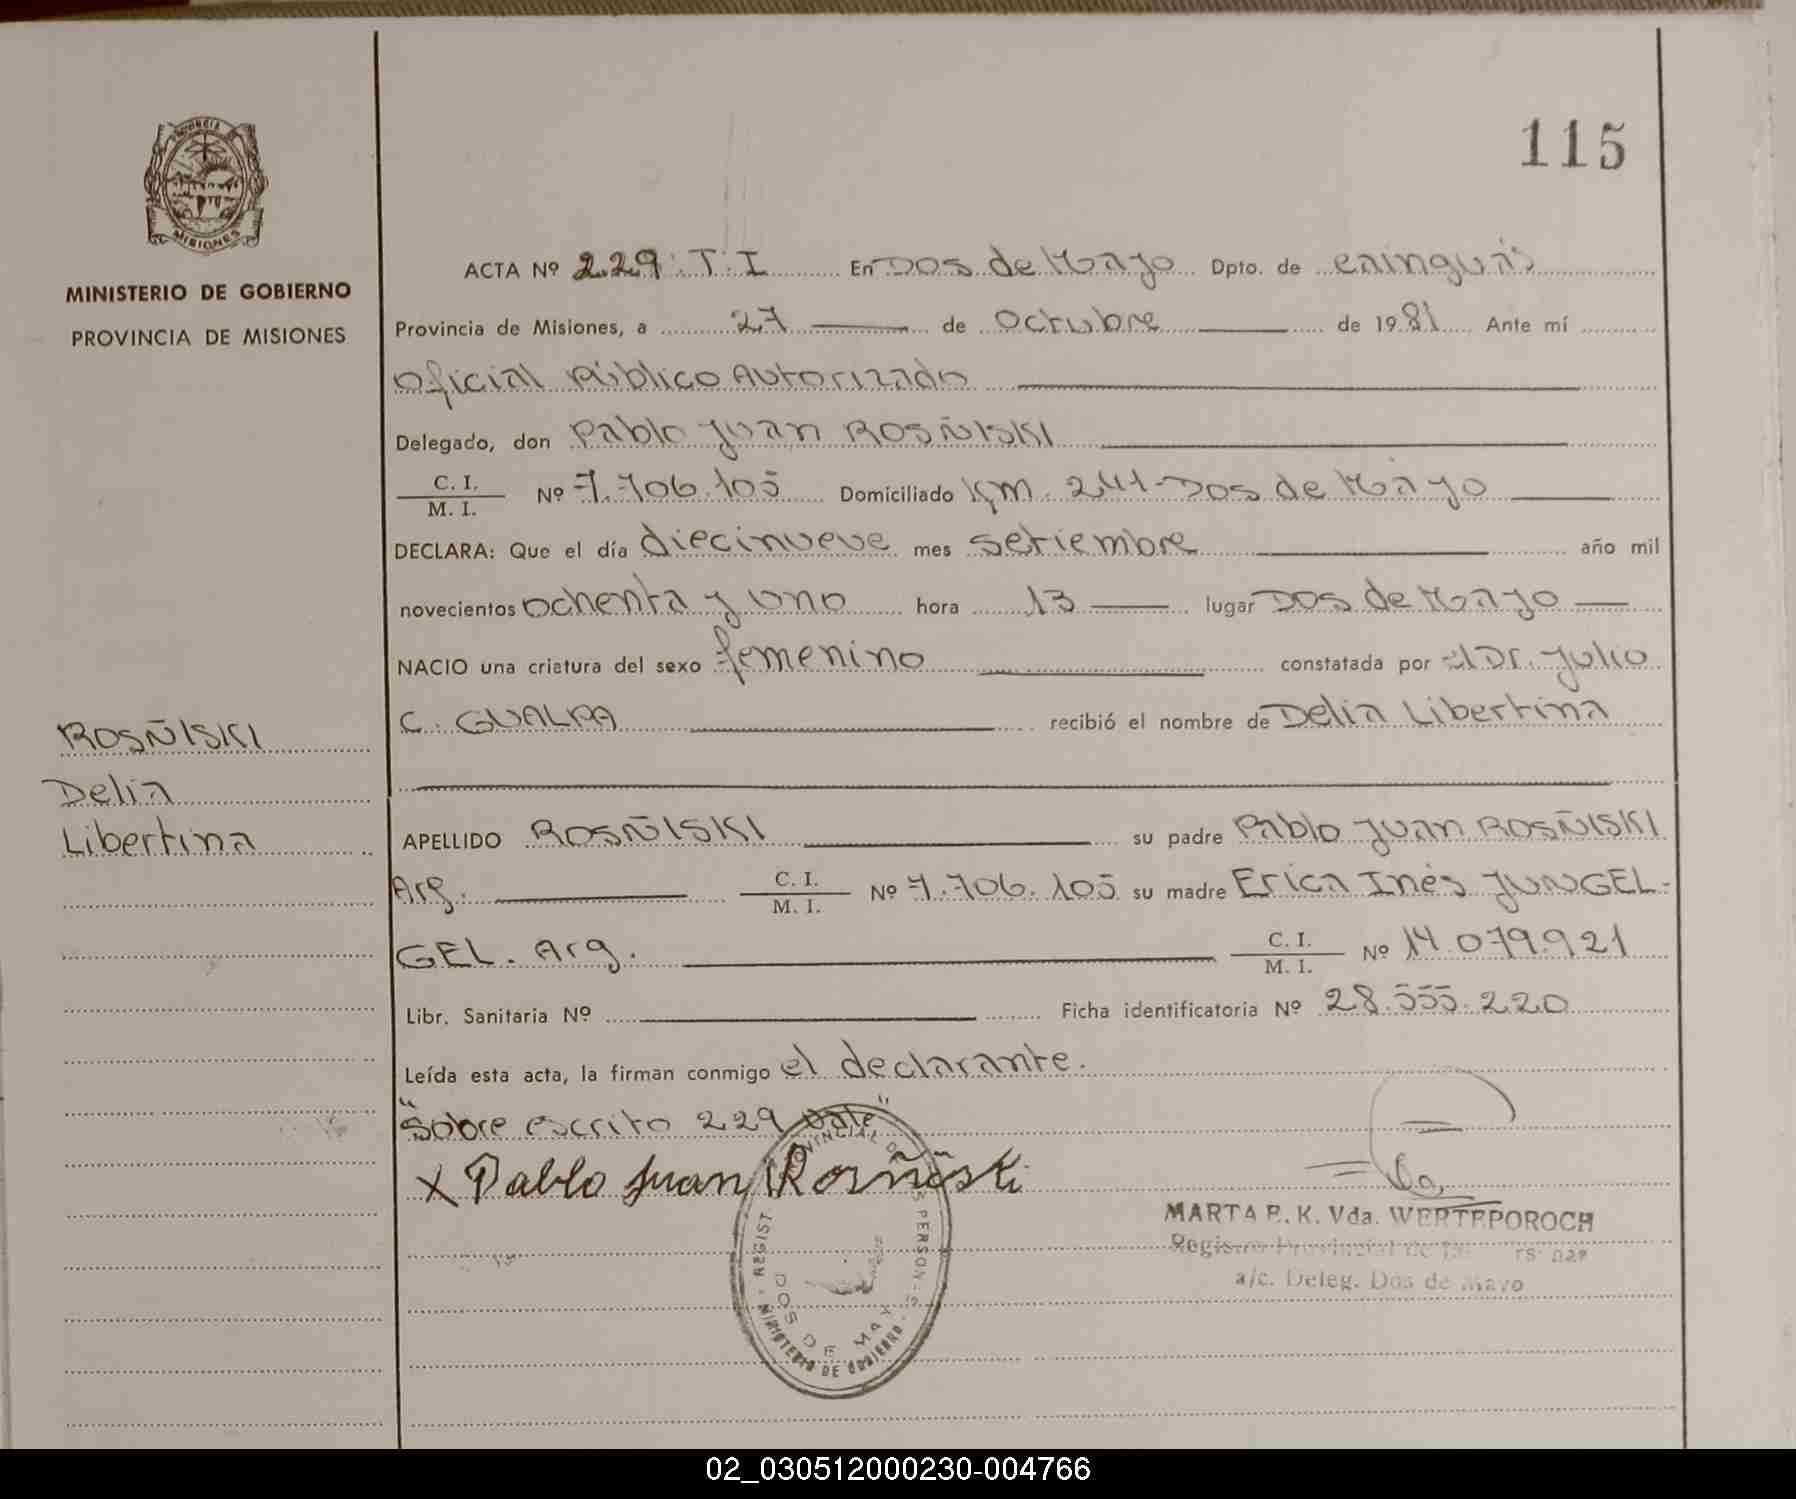 115
PROVINCIA
MISIONES
MINISTERIO DE GOBIERNO
PROVINCIA DE MISIONES
ACTA Nº 229 T: I En Dos de Mayo Dpto. de cainguás
Provincia de Misiones, a 27 de octubre de 1981 Ante mí
Oficial Público Autorizado
Delegado, don Pablo Juan ROSÑISKI
C. I.
M. I. Nº 7.706.105 Domiciliado Km. 241-Dos de Mayo
DECLARA: Que el día diecinueve mes setiembre año mil
novecientos ochenta y uno hora 13 lugar Dos de Mayo
NACIO una criatura del sexo femenino constatada por el Dr. Julio
C. GUALPA recibió el nombre de Delia Libertina
ROSÑISKI
Delia
Libertina
APELLIDO ROSÑISKI su padre Pablo Juan ROSÑISKI
Arg. C. I. M. I. Nº 7.706.105 su madre Erica Inés JUNGEL-
GEL. Arg. C. I. M. I. Nº 14.079.921
Libr. Sanitaria Nº Ficha identificatoria Nº 28.555.220
Leída esta acta, la firman conmigo el declarante.
"Sobre escrito 229 Vale"
x Pablo Juan Rosñiski
MARTA E. K. Vda. WERTEPOROCH
Registro Provincial de
a/c. Deleg. Dos de Mayo
DOS DE MAYO
MINISTERIO DE GOBIERNO
02_030512000230-004766